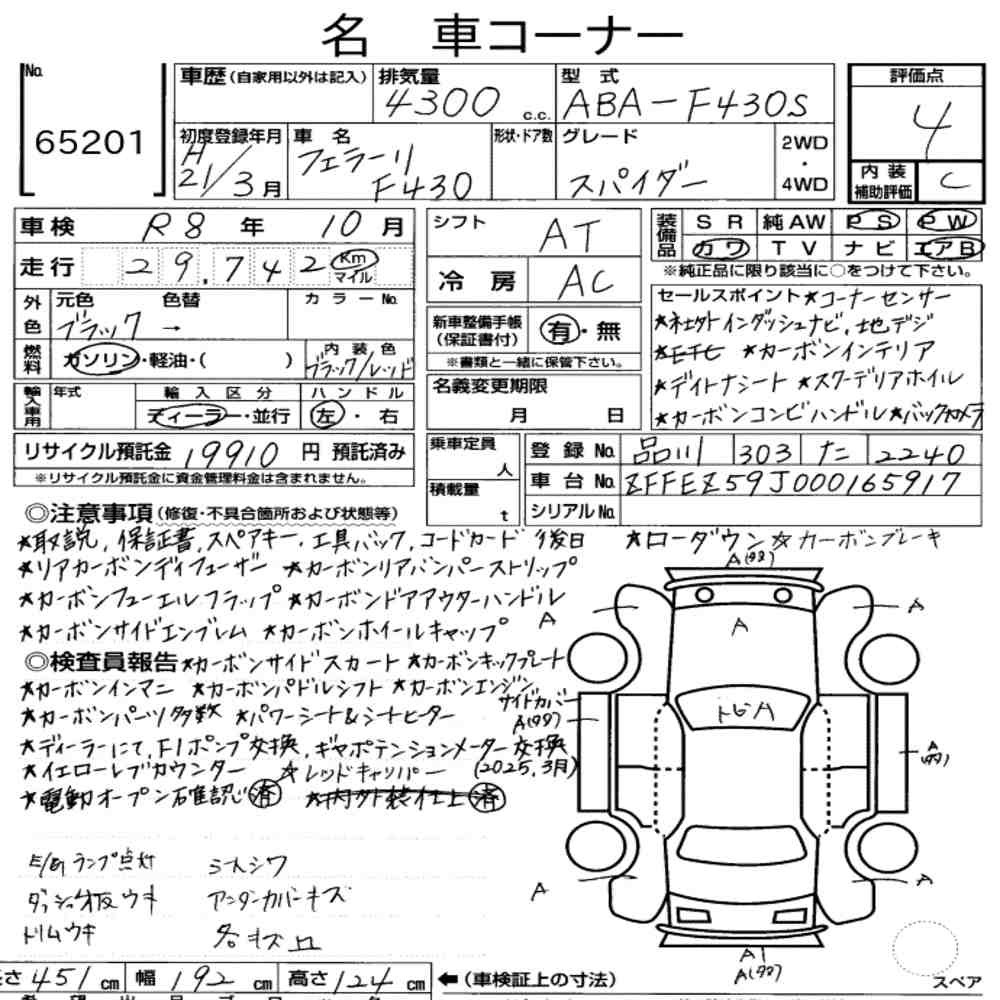 名 車コーナー
No.
65201
車歴(自家用以外は記入)
排気量
4300 c.c.
型式
ABA-F430S
評価点
4
内装
補助評価
C
初度登録年月
H
21/3月
車名
フェラーリ
F430
形状・ドア数
グレード
スパイダー
2WD
・
4WD
車検 R8 年 10 月
走行 29,742 Km
マイル
外色
元色 色替
ブラック →
カラーNo.
燃料
ガソリン・軽油・( )
内装色
ブラック/レッド
輸入車用
年式
輸入区分
ディーラー・並行
ハンドル
左・右
リサイクル預託金 19910 円 預託済み
※リサイクル預託金に資金管理料金は含まれません。
シフト AT
冷房 AC
新車整備手帳
(保証書付)
有・無
※書類と一緒に保管下さい。
名義変更期限
月 日
乗車定員
人
積載量
t
装備品
SR 純AW PS PW
カワ TV ナビ エアB
※純正品に限り該当に○をつけて下さい。
セールスポイント ★コーナーセンサー
★社外インダッシュナビ,地デジ
★ETC ★カーボンインテリア
★デイトナシート ★スクーデリアホイル
★カーボンコンビハンドル ★バックカメラ
登録No. 品川 303 た 2240
車台No. ZFFEZ59J000165917
シリアルNo.
◎注意事項(修復・不具合箇所および状態等)
★取説,保証書,スペアキー,工具バック,コードカード 後日 ★ローダウン ☆カーボンブレーキ
★リアカーボンディフューザー ★カーボンリアバンパーストリップ
★カーボンフューエルフラップ ★カーボンドアアウターハンドル
★カーボンサイドエンブレム ★カーボンホイールキャップ
◎検査員報告 ★カーボンサイドスカート ★カーボンキックプレート
★カーボンインマニ ★カーボンパドルシフト ★カーボンエンジン
★カーボンパーツ多数 ★パワーシート&シートヒーター
★ディーラーにて,F1ポンプ交換,ギヤポテンションメーター交換
★イエローレブカウンター ☆レッドキャリパー (2025.3月)
★電動オープン確認 済 ★内外装仕上 済
E/gランプ点灯 シートシワ
ダッシュ板ウキ アンダーカバーキズ
トリムウキ 各キズ凹
A(タッチ)
A
A
A
サイドカバー
A(タッチ)
トビA
A
(タッチ)
A
A
A1
A(タッチ)
長さ 451 cm 幅 192 cm 高さ 124 cm ←(車検証上の寸法)
スペア